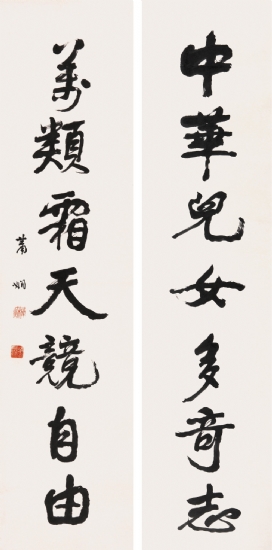 中華兒女多奇志
萬類霜天競自由
蕭嫻